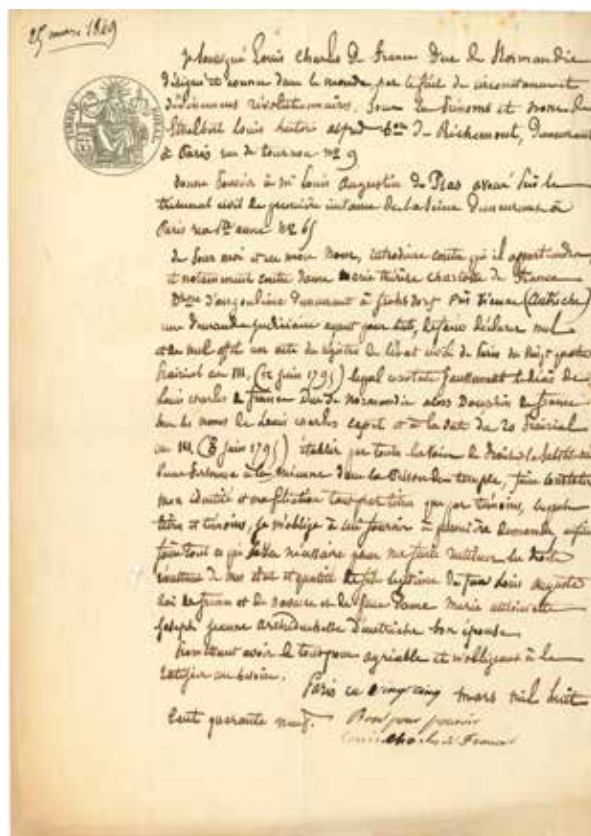 25 mars 1849
Je soussigné Louis Charles de France Duc de Normandie
désigné et connu dans le monde par le fait de circonstances et
d'événements révolutionnaires, sous les prénoms et nom de
Ethelbert Louis hector alfred Bon de Richemont, demeurant
à Paris rue de tournon no 9
donne pouvoir à Mr Louis Augustin de Plas avoué près le
tribunal civil de première instance de la Seine demeurant à
Paris rue Ste anne no 65
de pour moi et en mon nom, introduire contre qui il appartiendra
et notamment contre dame Marie thérèse charlotte de France
Dsse d'angoulême demeurant à frohsdorf près Vienne (Autriche)
une demande judiciaire ayant pour but, de faire déclarer nul
et de nul effet un acte du registre de l'état civil de Paris du vingt quatre
Prairial an III. (12 juin 1795) lequel constate faussement le décès de
Louis charles de france Duc de normandie alors Dauphin de france
sous les noms de Louis charles capet et à la date du 20 Prairial
an III (8 juin 1795)
établir par toute la voie de droit la substitution
d'une personne à la mienne dans la Prison du temple, faire constater
mon identité et ma filiation tant par titres que par témoins, lesquels
titres et témoins, je m'oblige à lui fournir à première demande, enfin
faire tout ce qui sera nécessaire pour me faire restituer les droits
résultant de mon état et qualité de fils légitime de feu Louis auguste
Roi de france et de navarre et de feue dame Marie antoinette
Joseph jeanne archiduchesse d'autriche son épouse.
Promettant avoir le tout pour agréable et m'obligeant à le
ratifier au besoin.
Paris ce vingt cinq mars mil huit
cent quarante neuf.
Bon pour pouvoir
Louis charles de France